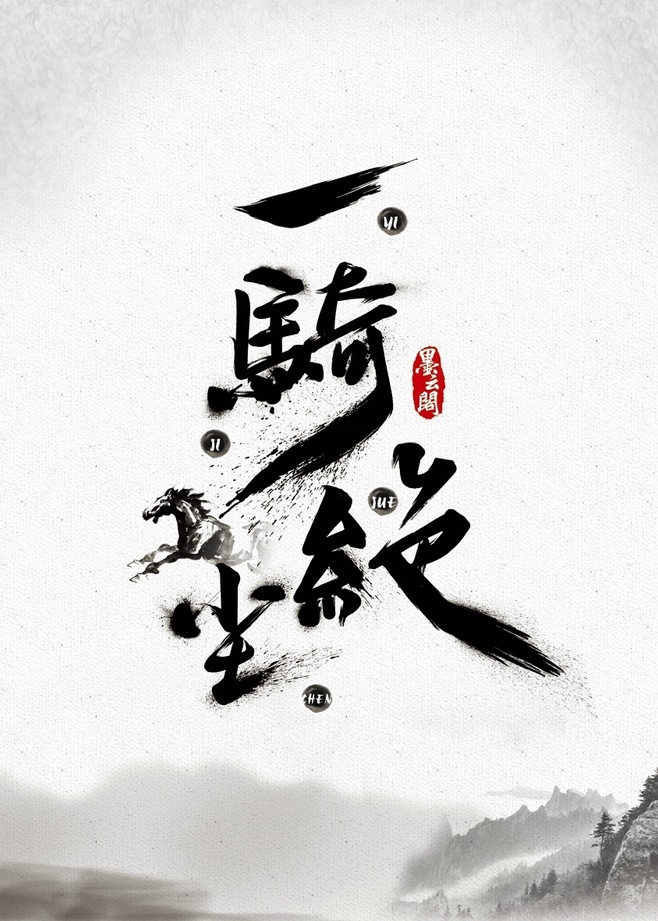 一
YI
騎
JI
墨云閣
絕
JUE
尘
CHEN